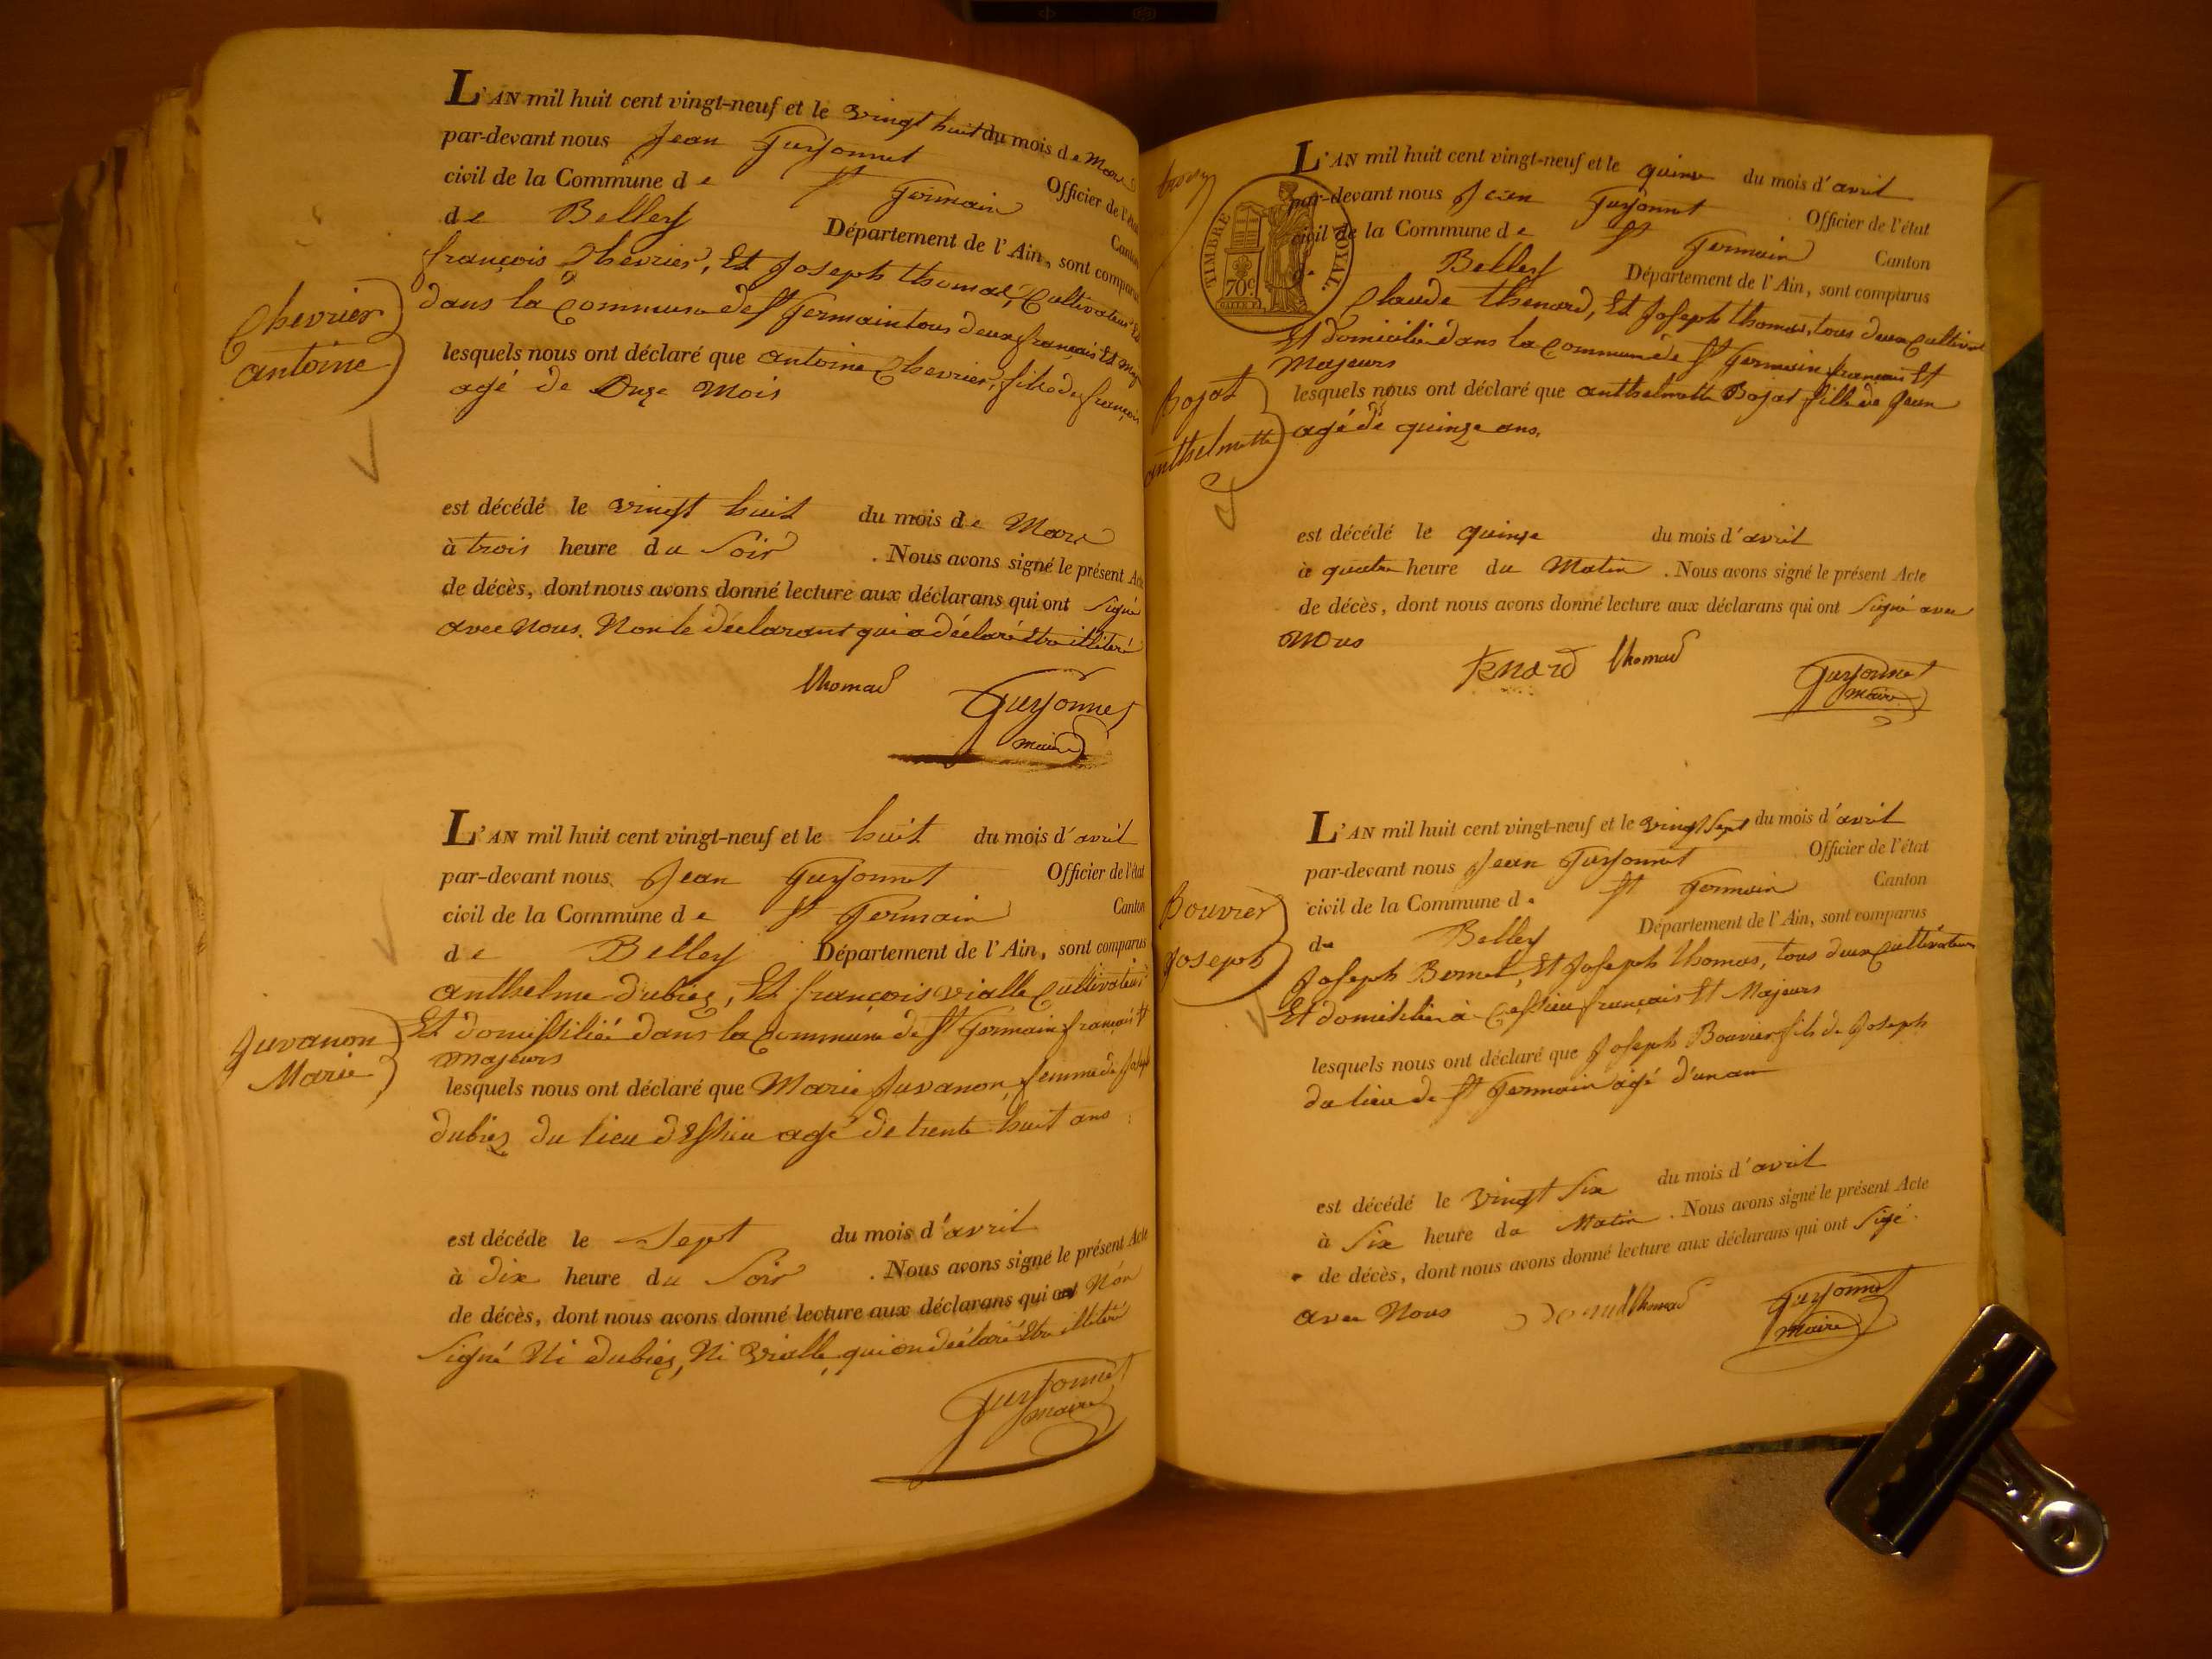 L'AN mil huit cent vingt-neuf et le vingt huit du mois de Mars
par-devant nous Jean Guyonnet Officier de l'état
civil de la Commune de St Germain Canton
de Belley Département de l'Ain, sont comparus
françois Chevrier, Et Joseph thomas, Cultivateurs
dans la Commune de St Germain tous deux français Et maj
Chevrier
antoine
lesquels nous ont déclaré que antoine Chevrier, fils de françois
agé de Onze Mois
est décédé le vingt huit du mois de Mars
à trois heure du Soir . Nous avons signé le présent Acte
de décès, dont nous avons donné lecture aux déclarans qui ont Signé
avec Nous, Non le déclarant qui a déclaré Etre illiteré
thomas Guyonnet
maire
L'AN mil huit cent vingt-neuf et le huit du mois d'avril
par-devant nous Jean Guyonnet Officier de l'état
civil de la Commune de St Germain Canton
de Belley Département de l'Ain, sont comparus
anthelme Dubiez, Et françois vialle Cultivateurs
Et domissiliée dans la Commune de St Germain français Et
majeurs
Juvanon
Marie
lesquels nous ont déclaré que Marie Juvanon, femme de Joseph
dubiez du lieu d'Essieu agé de trente huit ans
est décédé le Sept du mois d'avril
à dix heure du Soir . Nous avons signé le présent Acte
de décès, dont nous avons donné lecture aux déclarans qui ont Non
Signé Ni dubiez, Ni vialle, qui on déclaré Etre illiteré
Guyonnet
maire
TIMBRE ROYAL.
70c.
L'AN mil huit cent vingt-neuf et le quinze du mois d'avril
par-devant nous Jean Guyonnet Officier de l'état
civil de la Commune de St Germain Canton
de Belley Département de l'Ain, sont comparus
Claude thenard, Et Joseph thomas, tous deux Cultivat
Et domicilié dans la Commune de St Germain français Et
Majeurs
Bojat
anthelmette
lesquels nous ont déclaré que anthelmette Bojat fille de Jean
agé de quinze ans.
est décédé le quinze du mois d'avril
à quatre heure du Matin . Nous avons signé le présent Acte
de décès, dont nous avons donné lecture aux déclarans qui ont Signé avec
Nous
tenard thomas Guyonnet
maire
L'AN mil huit cent vingt-neuf et le vingt Sept du mois d'avril
par-devant nous Jean Guyonnet Officier de l'état
civil de la Commune de St Germain Canton
de Belley Département de l'Ain, sont comparus
Joseph Et Joseph thomas, tous deux Cultivateurs
Et domicilié à Cessieu français Et Majeurs
Bouvier
Joseph
lesquels nous ont déclaré que Joseph Bouvier fils de Joseph
du lieu de St Germain agé d'un an
est décédé le vingt Six du mois d'avril
à Six heure du Matin . Nous avons signé le présent Acte
de décès, dont nous avons donné lecture aux déclarans qui ont Sigé
avec Nous thomas Guyonnet
maire